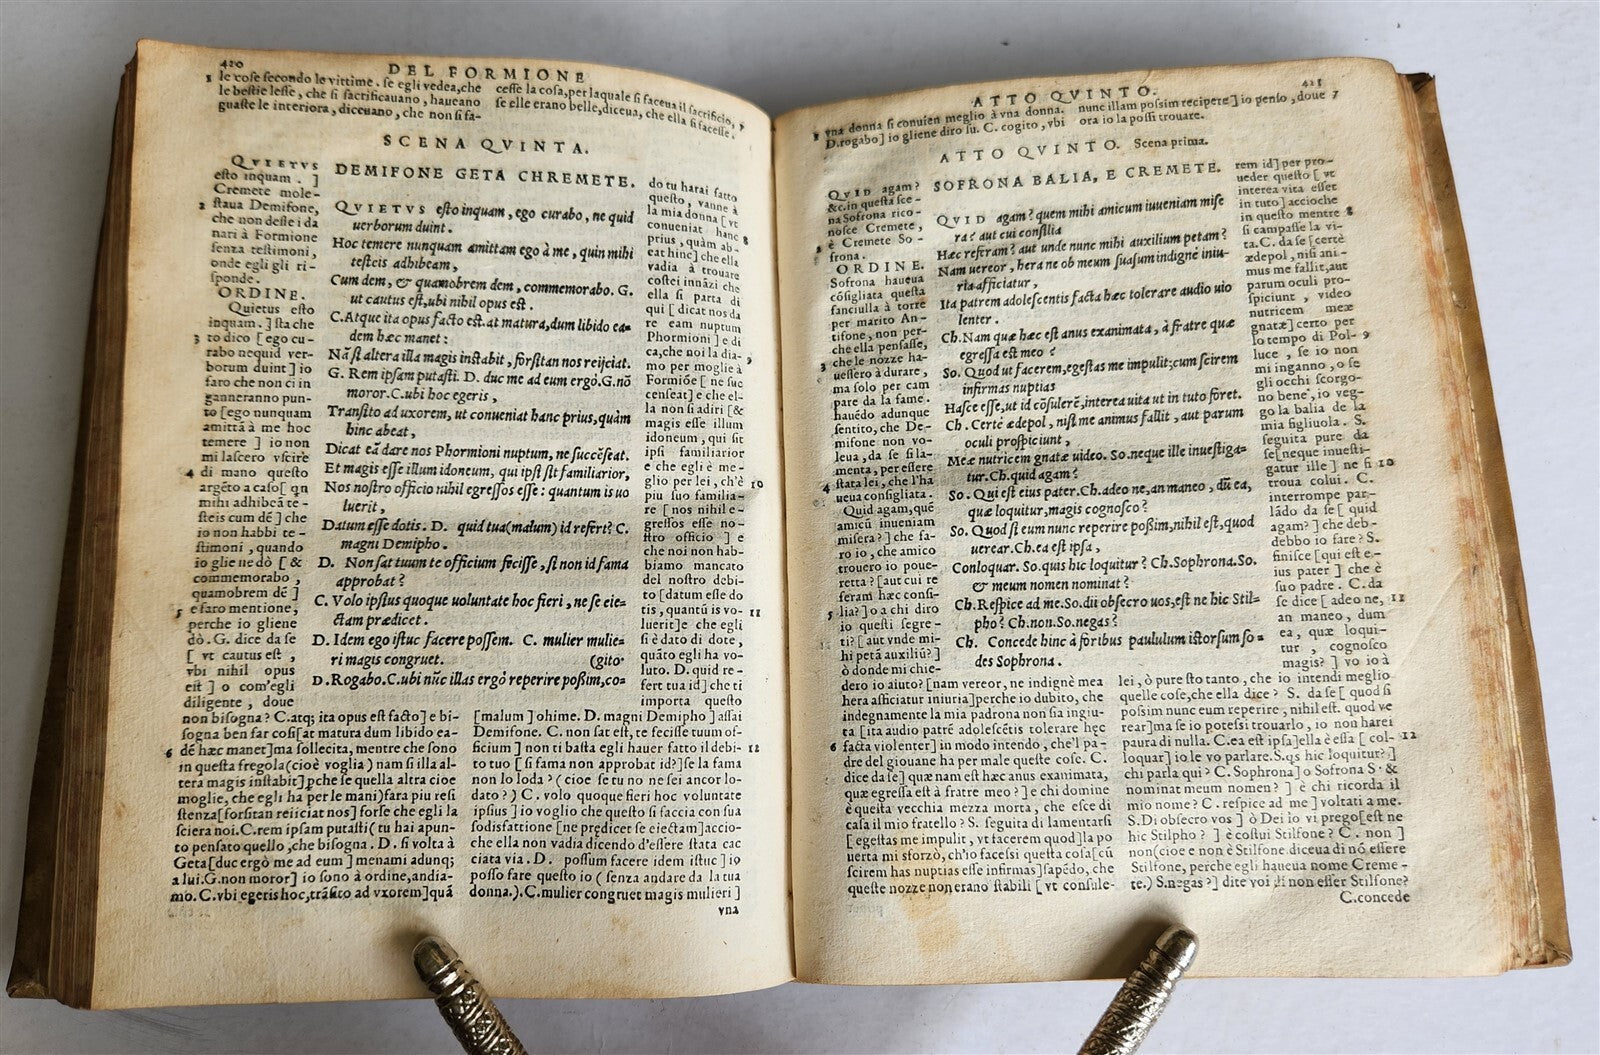 420
DEL FORMIONE
le cose secondo le vittime. se egli vedea, che
le bestie lesse, che si sacrificauano, haueano
guaste le interiora, diceuano, che non si fa-
cesse la cosa, per laquale si faceua il sacrificio,
se elle erano belle, diceua, che ella si facesse.
SCENA QVINTA.
DEMIFONE GETA CHREMETE.
QVIETVS
esto inquam. ]
Cremete mole-
staua Demifone,
che non desse i da
nari à Formione
senza testimoni,
onde egli gli ri-
sponde.
ORDINE.
Quietus esto
inquam. ] sta che
to dico [ ego cu-
rabo nequid ver-
borum duint ] io
faro che non ci in
ganneranno pun-
to [ ego nunquam
amittã à me hoc
temere ] io non
mi lascero vscire
di mano questo
argẽto a caso[ qn
mihi adhibeã te-
steis cum dẽ ] che
io non habbi te-
stimoni, quando
io glie ne dò [ &
commemorabo,
quamobrem dẽ ]
e faro mentione,
perche io gliene
dò. G. dice da se
[ vt cautus est,
vbi nihil opus
est ] o com'egli
diligente, doue
QVIETVS esto inquam, ego curabo, ne quid
uerborum duint.
Hoc temere nunquam amittam ego à me, quin mihi
testeis adhibeam,
Cum dem, & quamobrem dem, commemorabo. G.
ut cautus est, ubi nihil opus est.
C. Atque ita opus facto est. at matura, dum libido ea-
dem hæc manet:
Nã si altera illa magis instabit, forsitan nos reijciat.
G. Rem ipsam putasti. D. duc me ad eum ergò. G. nõ
moror. C. ubi hoc egeris,
Transito ad uxorem, ut conueniat hanc prius, quàm
hinc abeat,
Dicat eã dare nos Phormioni nuptum, ne succẽseat.
Et magis esse illum idoneum, qui ipsi sit familiarior,
Nos nostro officio nihil egressos esse: quantum is uo
luerit,
Datum esse dotis. D. quid tua (malum) id refert? C.
magni Demipho.
D. Non sat tuum te officium fecisse, si non id fama
approbat?
C. Volo ipsius quoque uoluntate hoc fieri, ne se eie-
ctam prædicet.
D. Idem ego istuc facere possem. C. mulier mulie-
ri magis congruet. (gito
D. Rogabo. C. ubi nũc illas ergò reperire poßim, co-
do tu harai fatto
questo, vanne à
la mia donna [ vt
conueniat hanc
prius, quàm ab-
eat hinc] che ella
vadia à trouare
costei innãzi che
ella si parta di
qui [ dicat nos da
re eam nuptum
Phormioni ] e di
ca, che noi la dia-
mo per moglie à
Formiõe [ ne suc
censeat] e che el-
la non si adiri [ &
magis esse illum
idoneum, qui sit
ipsi familiarior
e che egli è me-
glio per lei, ch'è
piu suo familia-
re [ nos nihil e-
gressos esse no-
stro officio ] e
che noi non hab-
biamo mancato
del nostro debi-
to [datum esse do
tis, quantũ is vo-
luerit]e che egli
si è dato di dote,
quãto egli ha vo-
luto. D. quid re-
fert tua id] che ti
importa questo
non bisogna? C. atq; ita opus est facto] e bi-
sogna ben far cosi[at matura dum libido ea-
dẽ hæc manet]ma sollecita, mentre che sono
in questa fregola(cioè voglia) nam si illa al-
tera magis instabit]pche se quella altra cioe
moglie, che egli ha per le mani)fara piu resi
stenza[forsitan reiiciat nos] forse che egli la
sciera noi. C. rem ipsam putasti( tu hai apun-
to pensato quello, che bisogna. D. si volta à
Geta[duc ergò me ad eum ] menami adunq;
a lui. G. non moror] io sono à ordine, andia-
mo. C. vbi egeris hoc, trãsito ad vxorem]quã
[malum ] ohime. D. magni Demipho ] assai
Demifone. C. non sat est, te fecisse tuum of-
ficium ] non ti basta egli hauer fatto il debi-
to tuo [ si fama non approbat id?]se la fama
non lo loda? ( cioe se tu no ne sei ancor lo-
dato? ) C. volo quoque fieri hoc voluntate
ipsius ] io voglio che questo si faccia con sua
sodisfattione [ne prędicet se eiectam]accio-
che ella non vadia dicendo d'essere stata cac
ciata via. D. possum facere idem istuc ] io
posso fare questo io ( senza andare da la tua
donna.). C. mulier congruet magis mulieri ]
vna
421
ATTO QVINTO.
vna donna si conuien meglio à vna donna.
D. rogabo] io gliene diro su. C. cogito, vbi
nunc illam possim recipere] io penso, doue
ora io la possi trouare.
ATTO QVINTO. Scena prima.
SOFRONA BALIA, E CREMETE.
QVID agam?
&c. in questa sce-
na Sofrona rico-
nosce Cremete,
è Cremete So-
frona.
ORDINE.
Sofrona haueua
cõsigliata questa
fanciulla à torre
per marito An-
tifone, non per-
che ella pensasse,
che le nozze ha-
uessero à durare,
ma solo per cam
pare da la fame.
hauẽdo adunque
sentito, che De-
mifone non vo-
leua, da se si la-
menta, per essere
stata lei, che l'ha
ueua consigliata.
Quid agam, quẽ
amicũ inueniam
misera? ] che fa-
ro io, che amico
trouero io poue-
retta? [ aut cui re
feram hæc consi-
lia? ] o a chi diro
io questi segre-
ti? [ aut vnde mi-
hi petã auxiliũ? ]
ò donde mi chie-
QVID agam? quem mihi amicum iuueniam mise
ra? aut cui consilia
Hæc referam? aut unde nunc mihi auxilium petam?
Nam uereor, hera ne ob meum suasum indignè iniu-
ria afficiatur,
Ita patrem adolescentis facta hæc tolerare audio uio
lenter.
Ch. Nam quæ hæc est anus exanimata, à fratre quæ
egressa est meo?
So. Quod ut facerem, egestas me impulit; cum scirem
infirmas nuptias
Hasce esse, ut id cõsulerẽ, interea uita ut in tuto foret.
Ch. Certè ædepol, nisi me animus fallit, aut parum
oculi prospiciunt,
Meæ nutricem gnatæ uideo. So. neque ille inuestiga-
tur. Ch. quid agam?
So. Qui est eius pater. Ch. adeo ne, an maneo, dũ ea,
quæ loquitur, magis cognosco?
So. Quod si eum nunc reperire poßim, nihil est, quod
uerear. Ch. ea est ipsa,
Conloquar. So. quis hic loquitur? Ch. Sophrona. So.
& meum nomen nominat?
Ch. Respice ad me. So. dii obsecro uos, est ne hic Stil-
pho? Ch. non. So. negas?
Ch. Concede hinc à foribus paululum istorsum so-
des Sophrona.
rem id] per pro-
ueder questo [ vt
interea vita esset
in tuto ] accioche
in questo mentre
si campasse la vi-
ta. C. da se [ certè
ædepol, nisi ani-
mus me fallit, aut
parum oculi pro-
spiciunt, video
nutricem meæ
gnatæ] certo per
lo tempo di Pol-
luce, se io non
mi inganno, o se
gli occhi scorgo-
no bene, io veg-
go la balia de la
mia figliuola. S.
seguita pure da
se[neque inuesti-
gatur ille ] ne si
troua colui. C.
interrompe par-
lãdo da se [ quid
agam? ] che deb-
debbo io fare? S.
finisce [ qui est e-
ius pater ] che è
suo padre. C. da
se dice [ adeo ne,
an maneo, dum
ea, quæ loqui-
tur, cognosco
magis? ] vo io à
dero io aiuto? [nam vereor, ne indignè mea
hera afficiatur iniuria]perche io dubito, che
indegnamente la mia padrona non sia ingiu-
ta [ita audio patrẽ adolescẽtis tolerare hęc
facta violenter] in modo intendo, che'l pa-
dre del giouane ha per male queste cose. C.
dice da se] quæ nam est hæc anus exanimata,
quæ egressa est à fratre meo? ] e chi domine
è questa vecchia mezza morta, che esce di
casa il mio fratello? S. seguita di lamentarsi
[ egestas me impulit, vt facerem quod]la po
uerta mi sforzò, ch'io facessi questa cosa[cũ
scirem has nuptias esse infirmas]sapẽdo, che
queste nozze non erano stabili [ vt consule-
lei, ò pure sto tanto, che io intendi meglio
quelle cose, che ella dice? S. da se [ quod si
possim nunc eum reperire, nihil est. quod ve
rear]ma se io potessi trouarlo, io non harei
paura di nulla. C. ea est ipsa]ella è essa [ col-
loquar] io le vo parlare. S. qs hic loquitur? ]
chi parla qui? C. Sophrona] o Sofrona S. &
nominat meum nomen? ] è chi ricorda il
mio nome? C. respice ad me ] voltati a me.
S. Di obsecro vos ] ò Dei io vi prego[est ne
hic Stilpho? ] è costui Stilfone? C. non ]
non(cioe e non è Stilfone. diceua di nõ essere
Stilfone, perche egli haueua nome Creme-
te.) S. negas? ] dite voi di non esser Stilfone?
C. concede